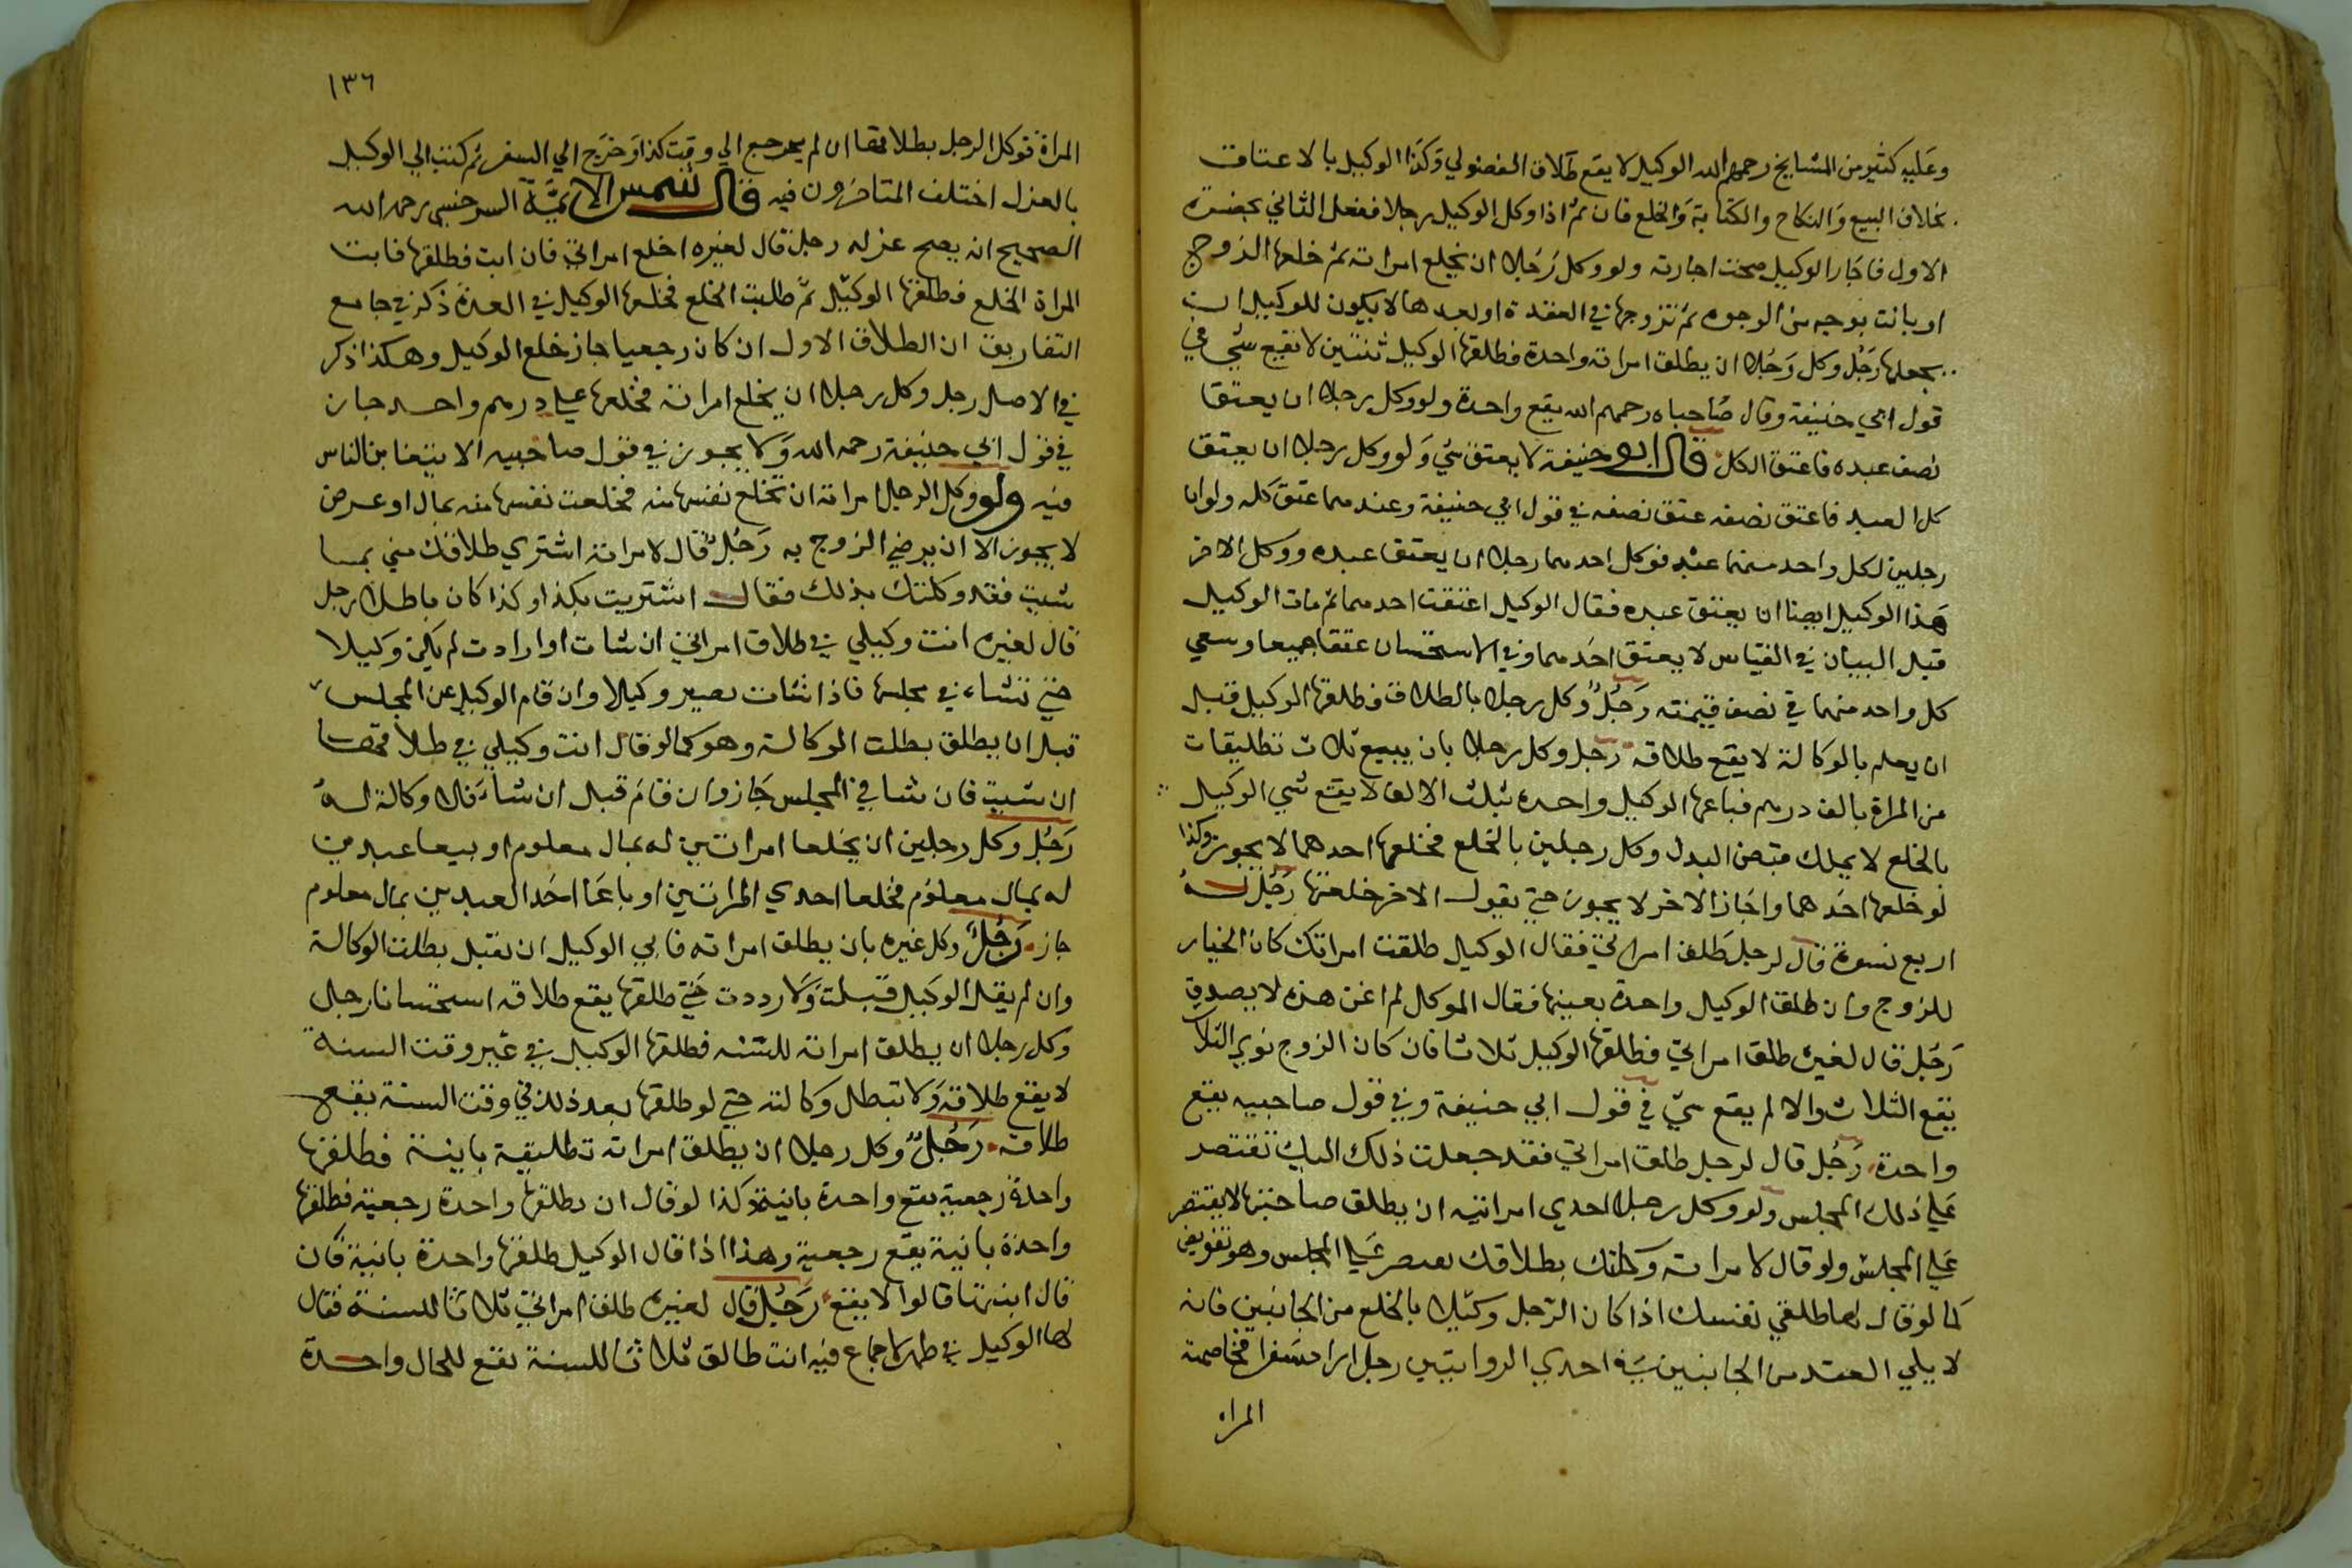 وعليه كثير من المشايخ رحمهم الله الوكيل لا يقع طلاق الفضولي وكذا الوكيل بالاعتاق
بخلاف البيع والنكاح والكتابة والخلع فان ثم اذا وكل الوكيل رجلا ففعل الثاني بحضرة
الاول فاجاز الوكيل صحت اجازته ولو وكل رجلا ان يخلع امراته ثم خلعها الزوج
او بانت بوجه من الوجوه ثم تزوجها في العدة او بعدها لا يكون للوكيل ان
يخلعها رجل وكل رجلا ان يطلق امراته واحدة فطلقها الوكيل ثنتين لا يقع شي في
قول ابي حنيفة وقال صاحباه رحمهم الله يقع واحدة ولو وكل رجلا ان يعتق
نصف عبده فاعتق الكل قال ابو حنيفة لا يعتق شي ولو وكل رجلا ان يعتق
كل العبد فاعتق نصفه عتق نصفه في قول ابي حنيفة وعندهما عتق كله ولو ان
رجلين لكل واحد منهما عبد فوكل احدهما رجلا ان يعتق عبده ووكل الاخر
هذا الوكيل ايضا ان يعتق عبده فقال الوكيل اعتقت احدهما ثم مات الوكيل
قبل البيان في القياس لا يعتق احدهما وفي الاستحسان عتقا جميعا وسعي
كل واحد منهما في نصف قيمته رجل وكل رجلا بالطلاق فطلقها الوكيل قبل
ان يعلم بالوكالة لا يقع طلاقه رجل وكل رجلا بان يبيع ثلاث تطليقات
من المراة بالف درهم فباعها الوكيل واحدة بثلث الالف لا يقع شي الوكيل
بالخلع لا يملك قبض البدل وكل رجلين بالخلع فخلعها احدهما لا يجوز وكذا
لو خلعها احدهما واجاز الاخر لا يجوز حتي يقول الاخر خلعتها رجل له
اربع نسوة قال لرجل طلق امراتي فقال الوكيل طلقت امراتك كان الخيار
للزوج وان طلق الوكيل واحدة بعينها فقال الموكل لم اعن هذه لا يصدق
رجل قال لغيره طلق امراتي فطلقها الوكيل ثلاثا فان كان الزوج نوي الثلاث
يقع الثلاث والا لم يقع شي في قول ابي حنيفة وفي قول صاحبيه يقع
واحدة رجل قال لرجل طلق امراتي فقد جعلت ذلك اليك تقتصر
علي ذلك المجلس ولو وكل رجل احدي امراتيه ان يطلق صاحبتها لا يقتصر
علي المجلس ولو قال لامراته وكلتك بطلاقك يقتصر علي المجلس وهو تفويض
كما لو قال لها طلقي نفسك اذا كان الرجل وكيلا بالخلع من الجانبين فانه
لا يلي العقد من الجانبين في احدي الروايتين رجل اراد سفرا فخاصمته
المراه
١٣٦
المراة فوكل الرجل بطلاقها ان لم يرجع الي وقت كذا وخرج الي السفر ثم كتب الي الوكيل
بالعزل اختلف المتاخرون فيه قال شمس الايمة السرخسي رحمه الله
الصحيح انه يصح عزله رجل قال لغيره اخلع امراتي فان ابت فطلقها فابت
المراة الخلع فطلقها الوكيل ثم طلبت الخلع فخلعها الوكيل في العدة ذكر في جامع
التفاريق ان الطلاق الاول ان كان رجعيا جاز خلع الوكيل وهكذا ذكر
في الاصل رجل وكل رجلا ان يخلع امراته فخلعها علي درهم واحد جاز
في قول ابي حنيفة رحمه الله ولا يجوز في قول صاحبيه الا بما يتغابن الناس
فيه ولو وكل الرجل امراته ان تخلع نفسها منه فخلعت نفسها منه بمال او عرض
لا يجوز الا ان يرضي الزوج به رجل قال لامراته اشتري طلاقك مني بما
شيت فقد وكلتك بذلك فقالت اشتريت بكذا وكذا كان باطلا رجل
قال لغيره انت وكيلي في طلاق امراتي ان شات او ارادت لم يكن وكيلا
حتي تشاء في مجلسها فاذا شات يصير وكيلا وان قام الوكيل عن المجلس
قبل ان يطلق بطلت الوكالة وهو كما لو قال انت وكيلي في طلاقها
ان شيت فان شا في المجلس جاز وان قام قبل ان شاء فلا وكالة له
رجل وكل رجلين ان يخلعا امراتين له بمال معلوم او بيعا عبدين
له بمال معلوم فخلعا احدي المراتين او باعا احد العبدين بمال معلوم
جاز رجل وكل غيره بان يطلق امراته فابي الوكيل ان يقبل بطلت الوكالة
وان لم يقل الوكيل قبلت ولا رددت حتي طلقها يقع طلاقه استحسانا رجل
وكل رجلا ان يطلق امراته للسنة فطلقها الوكيل في غير وقت السنة
لا يقع طلاقه ولا تبطل وكالته حتي لو طلقها بعد ذلك في وقت السنة يقع
طلاقه رجل وكل رجلا ان يطلق امراته تطليقة باينة فطلقها
واحدة رجعية يقع واحدة باينة وكذا لو قال ان يطلقها واحدة رجعية فطلقها
واحدة باينة يقع رجعية وهذا اذا قال الوكيل طلقتها واحدة باينة فان
قال ابنتها قالوا لا يقع رجل قال لغيره طلق امراتي ثلاثا للسنة فقال
لها الوكيل في طهر لا جماع فيه انت طالق ثلاثا للسنة يقع للحال واحدة